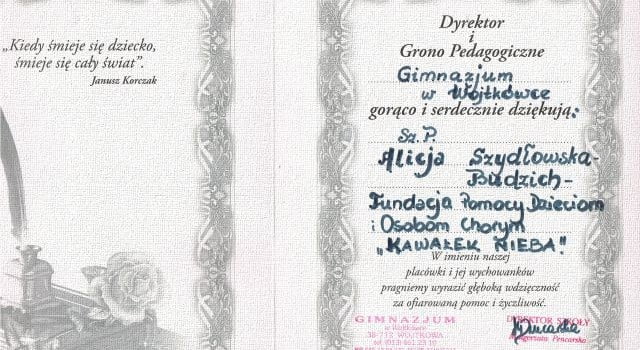 „Kiedy śmieje się dziecko,
śmieje się cały świat”.
Janusz Korczak
Dyrektor
i
Grono Pedagogiczne
Gimnazjum
w Wojtkówce
gorąco i serdecznie dziękują:
Sz. P.
Alicja Szydłowska-
Budzich-
Fundacja Pomocy Dzieciom
i Osobom Chorym
„KAWAŁEK NIEBA”
W imieniu naszej
placówki i jej wychowanków
pragniemy wyrazić głęboką wdzięczność
za ofiarowaną pomoc i życzliwość.
GIMNAZJUM
w Wojtkówce
DYREKTOR SZKOŁY
Małgorzata Pencarska